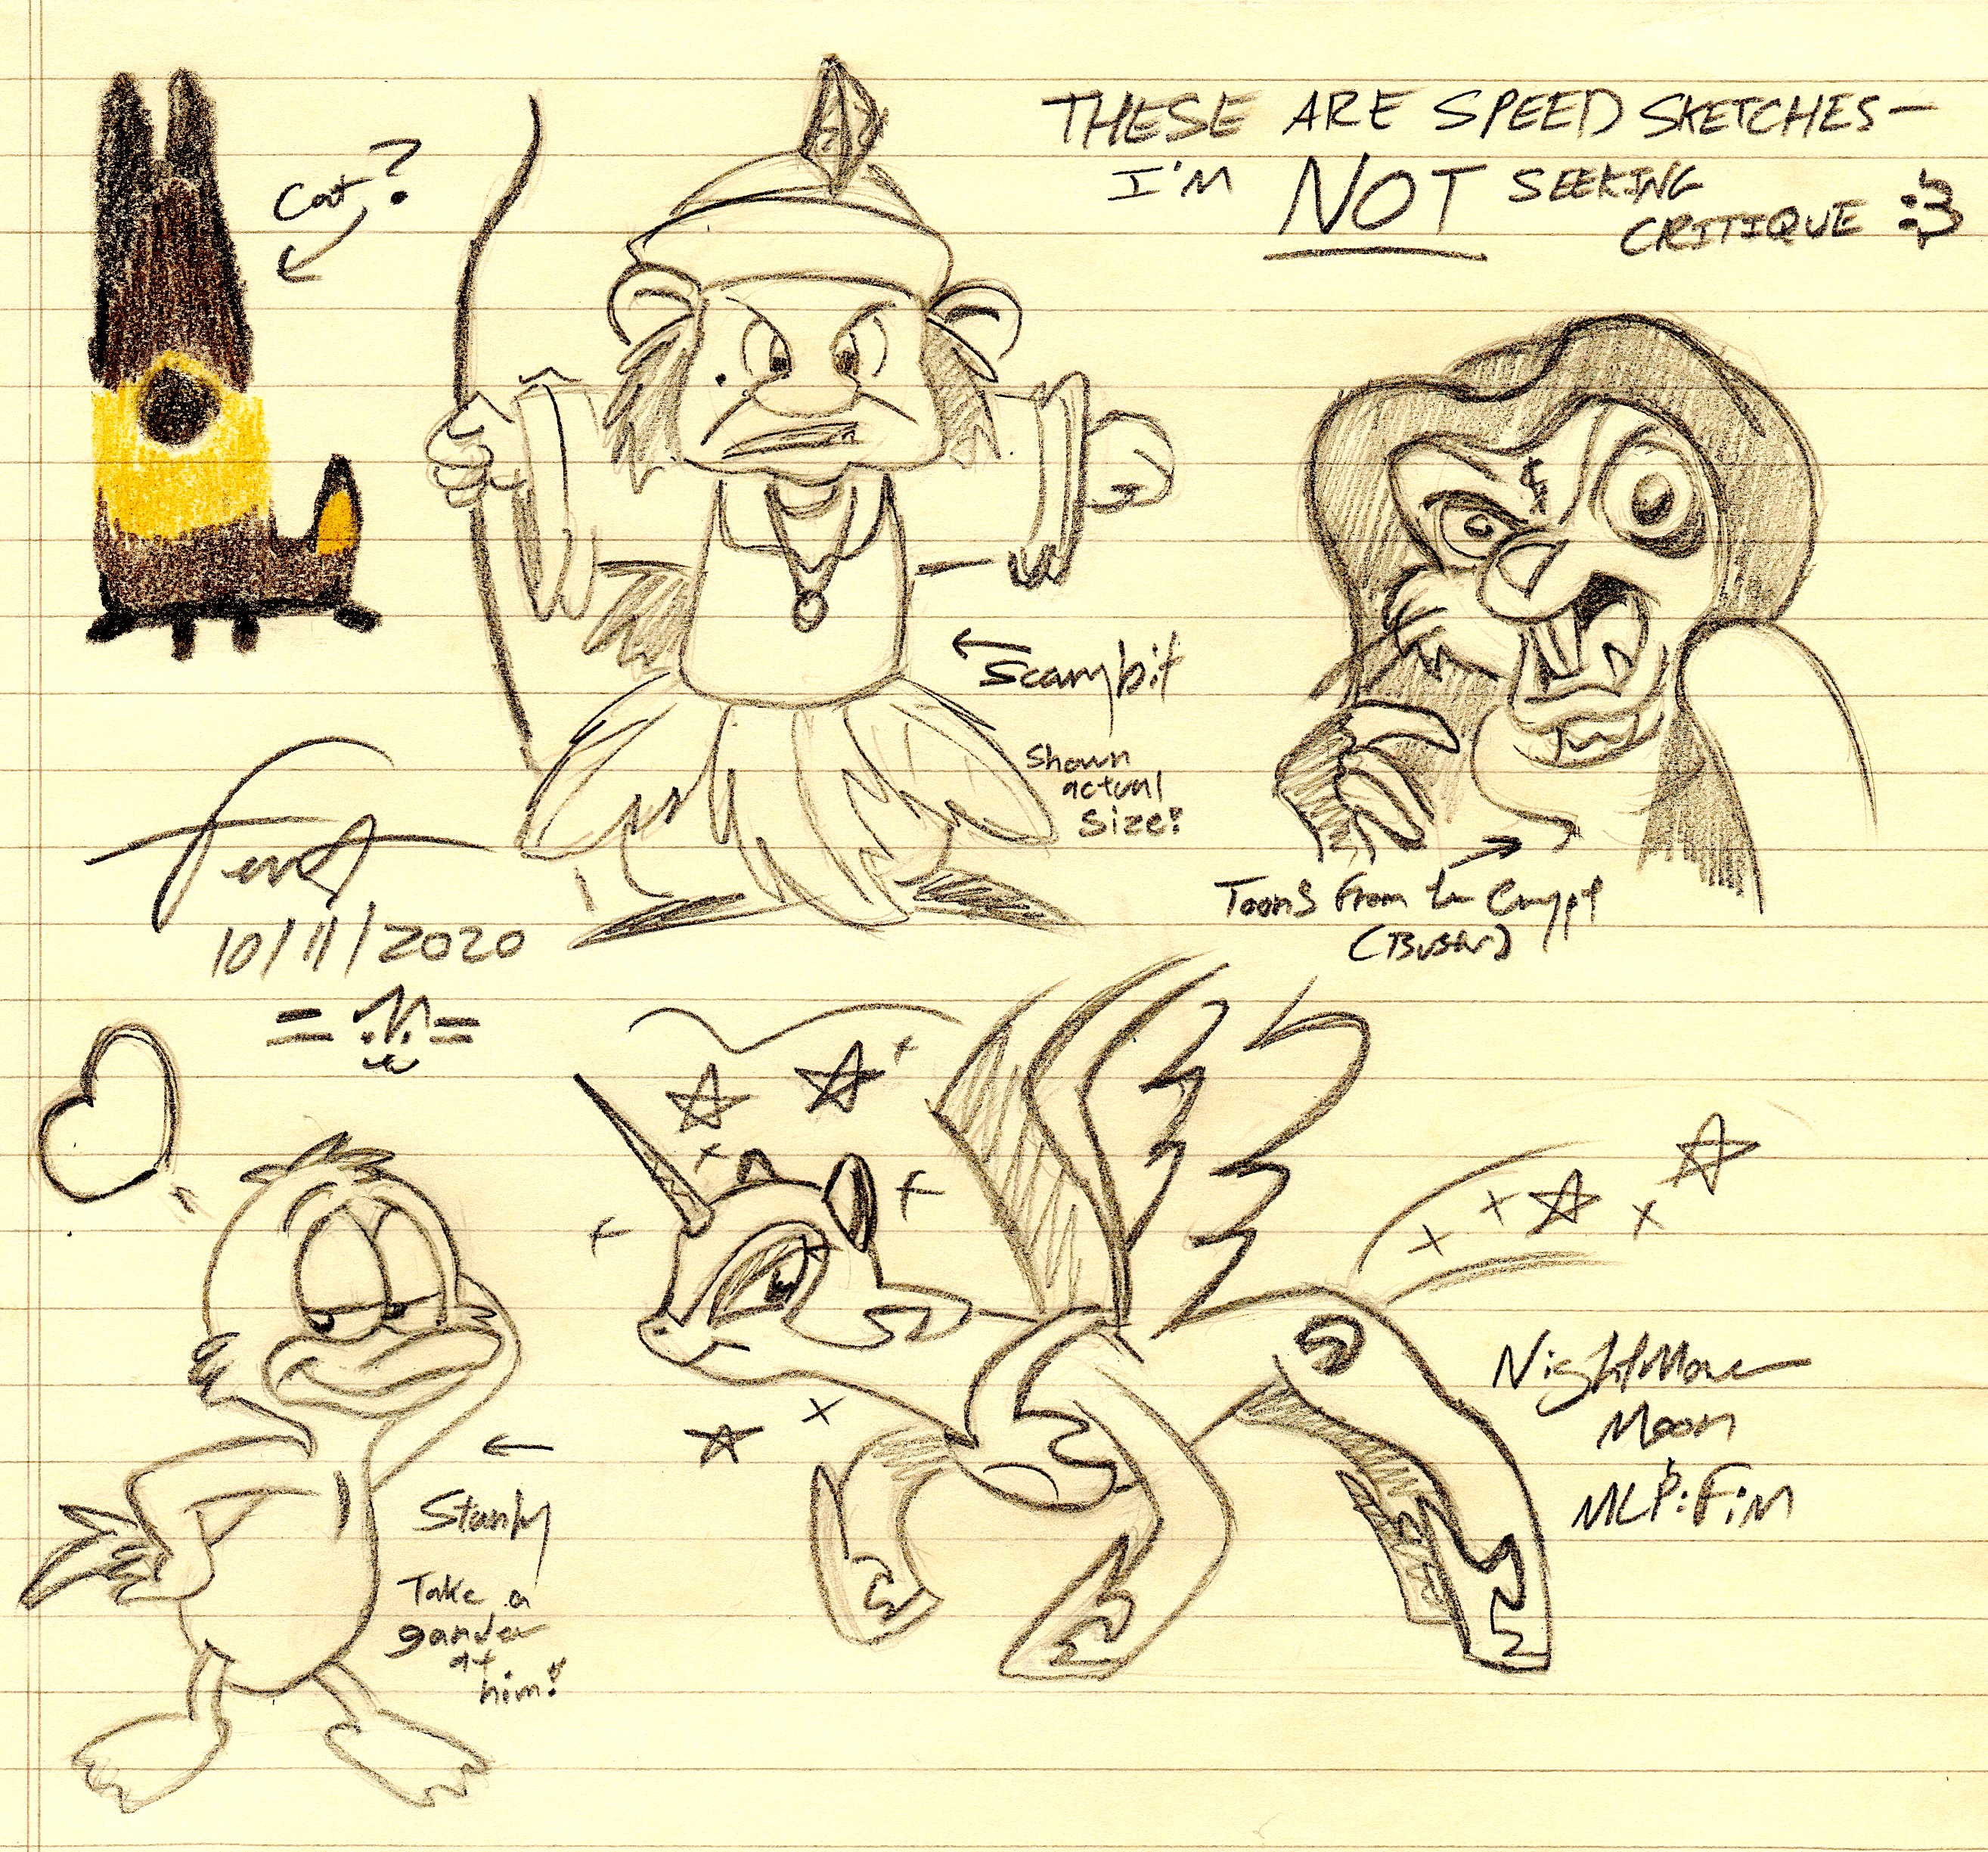 THESE ARE SPEED SKETCHES—
I'M NOT SEEKING
CRITIQUE :3
Cat?
Scarybit
Shown
actual
size!
Toons From the Crypt
(Buster)
10/11/2020
Stanly
Take a
gander
at
him!
NightMare
Moon
MLP:FiM